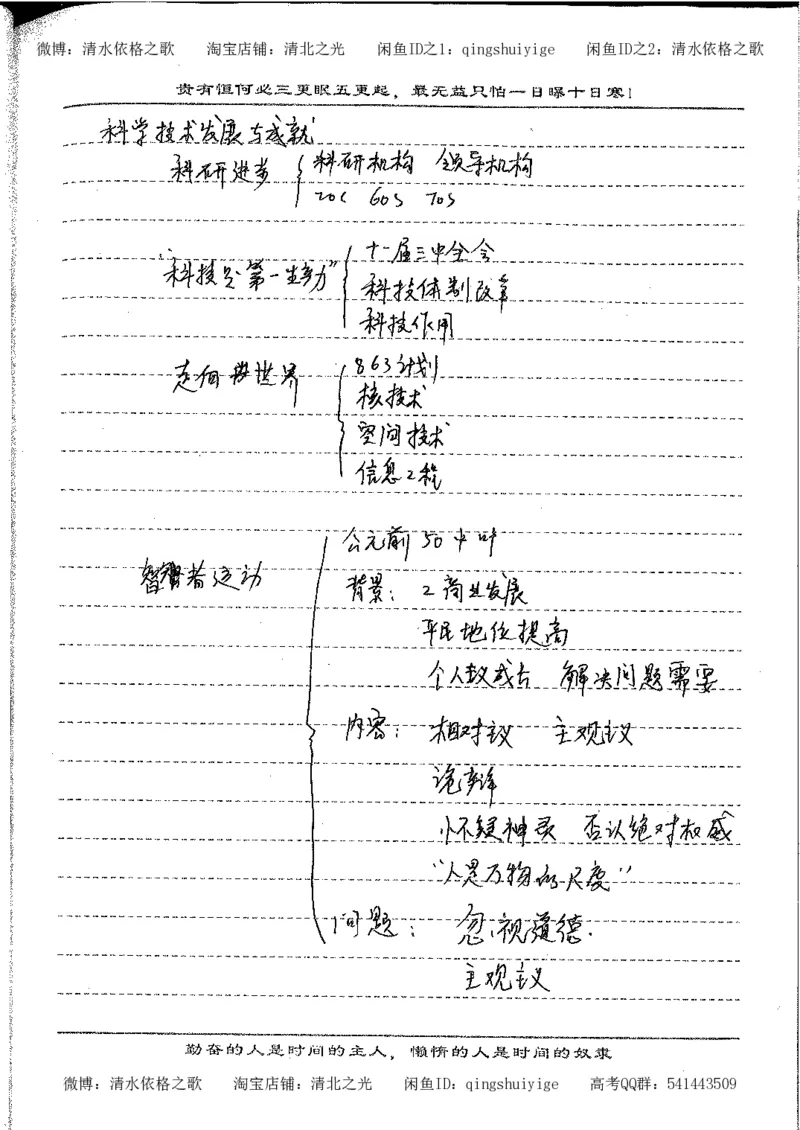 微博：清水依格之歌 淘宝店铺：清北之光 闲鱼ID之1：qingshuiyige 闲鱼ID之2：清水依格之歌
贵有恒何必三更眠五更起，最无益只怕一日曝十日寒！
科学技术发展与成就
科研进步 科研机构 领导机构
20C 60S 70S
“科技是第一生产力” 十一届三中全会
科技体制改革
科技作用
走向世界 863计划
核技术
空间技术
信息工程
公元前50中叶
智者运动
背景：工商业发展
平民地位提高
个人 解决问题需要
内容：相对主义 主观主义
诡辩
怀疑神灵 否认绝对权威
“人是万物的尺度”
问题：忽视道德.
主观主义
勤奋的人是时间的主人，懒惰的人是时间的奴隶
微博：清水依格之歌 淘宝店铺：清北之光 闲鱼ID：qingshuiyige 高考QQ群：541443509